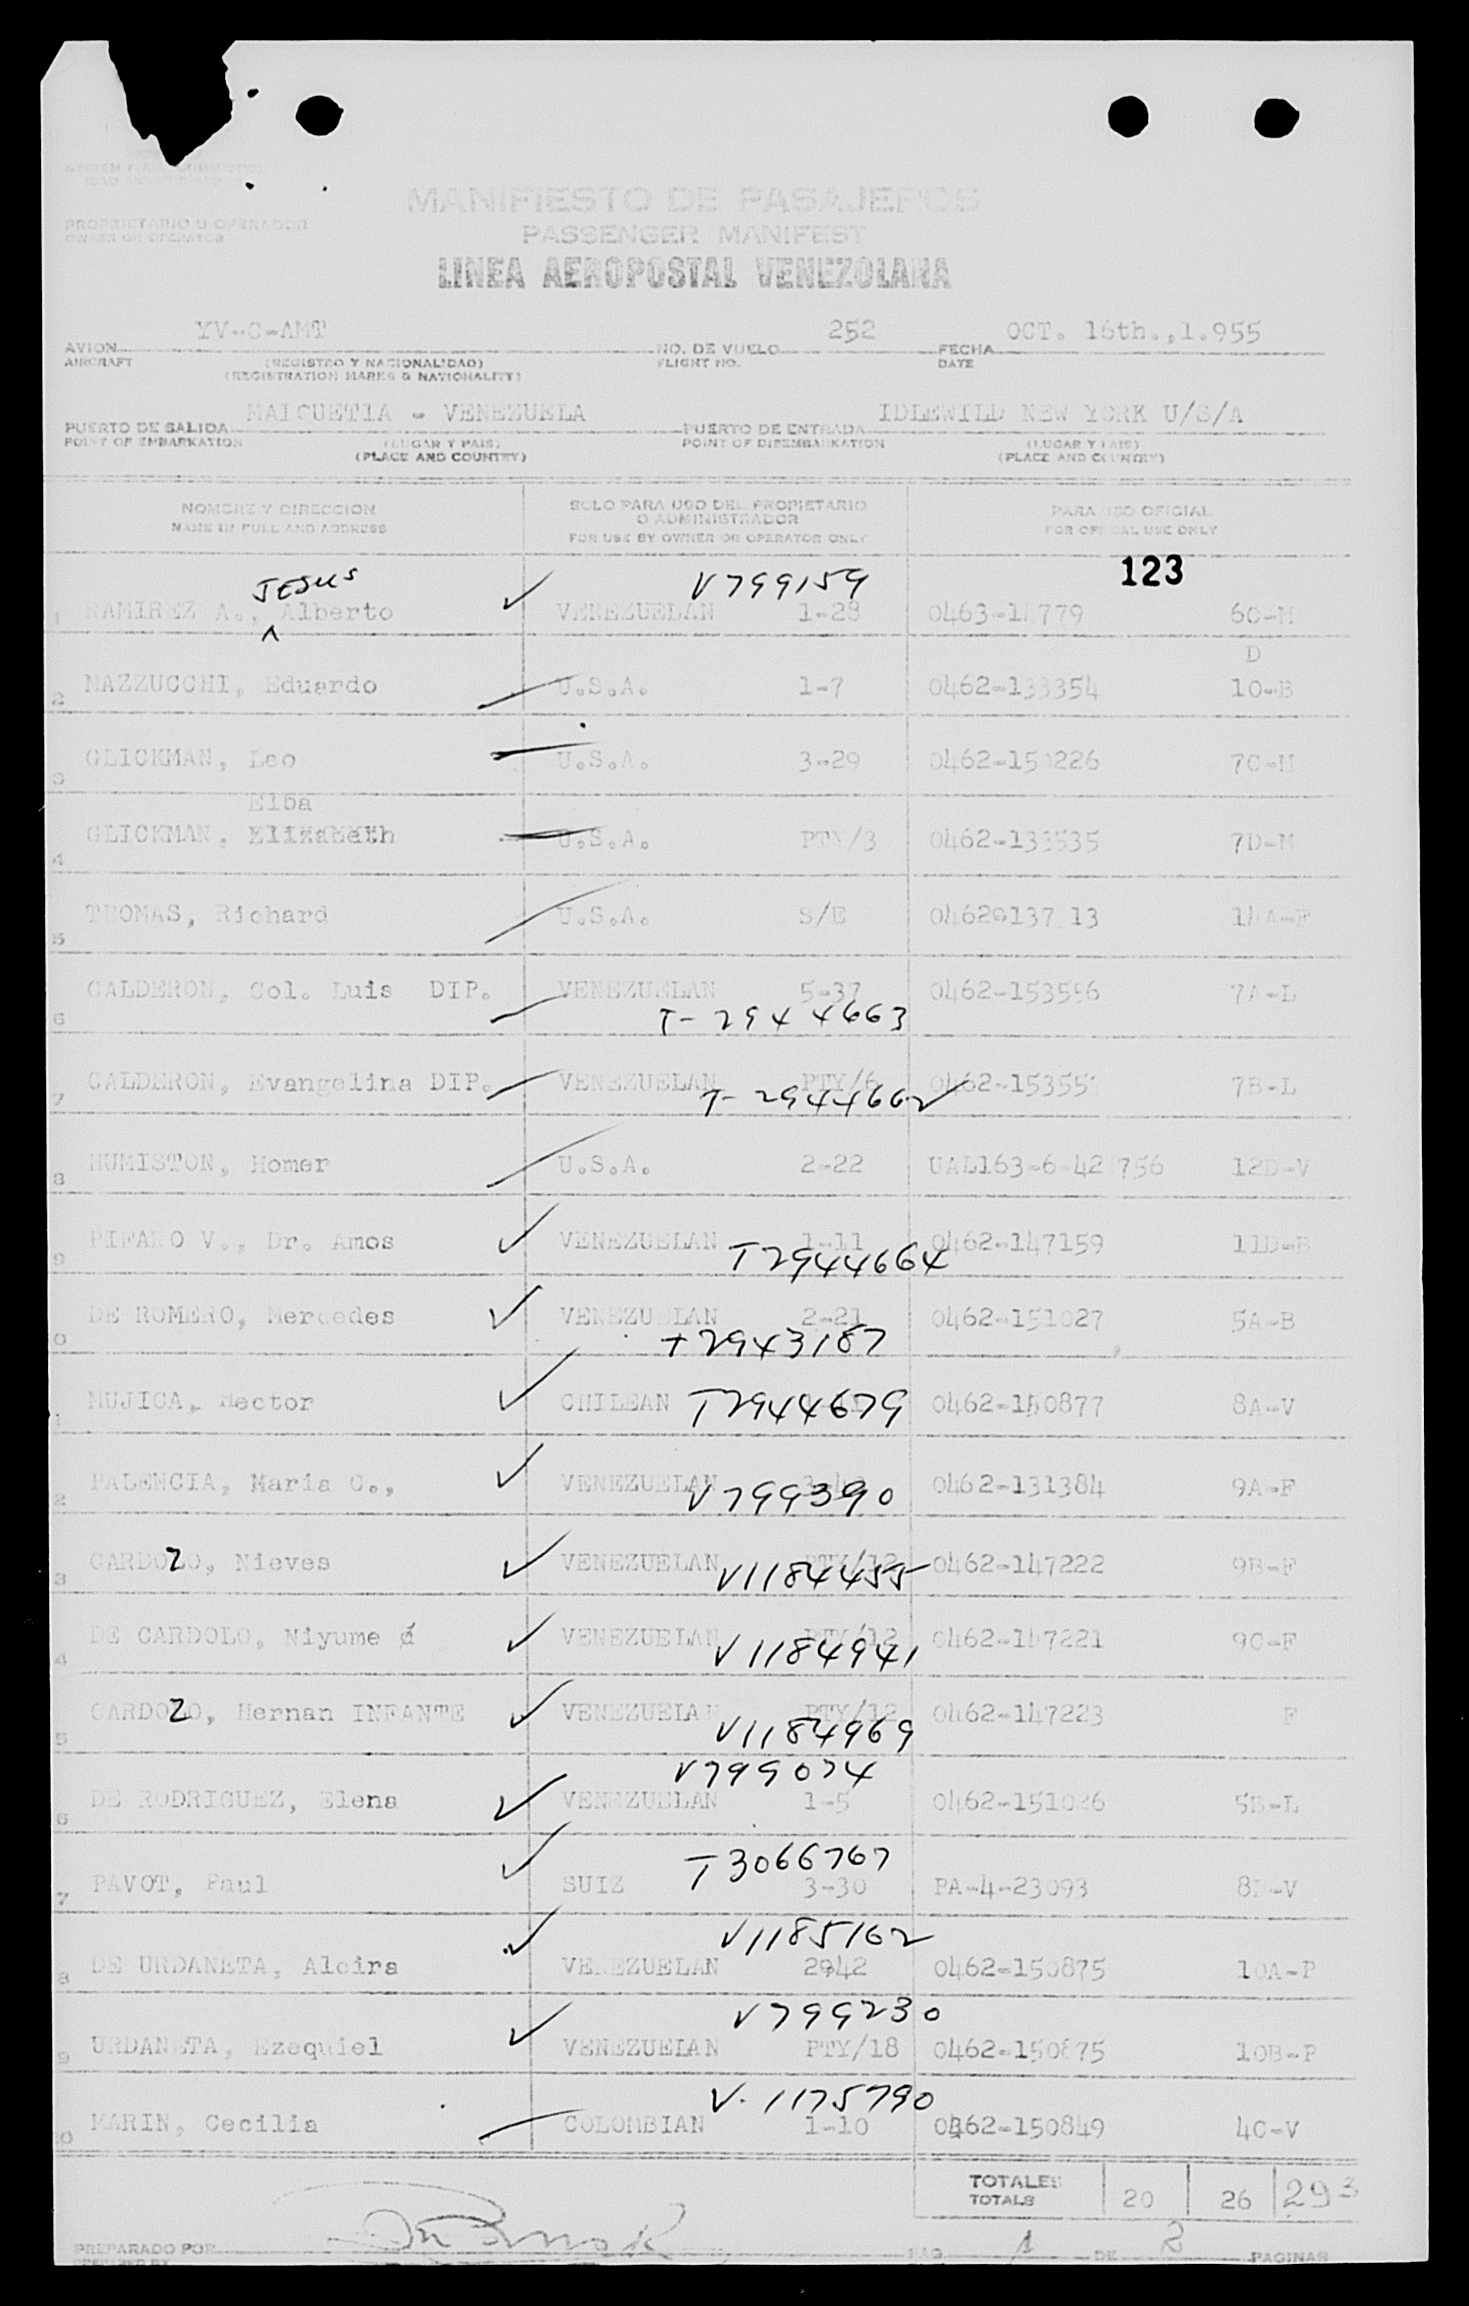 PROPRIETARIO U OPERADOR
OWNER OR OPERATOR
MANIFIESTO DE PASAJEROS
PASSENGER MANIFEST
LINEA AEROPOSTAL VENEZOLANA
YV-C-AMT 252 OCT. 16th.,1.955
AVION NO. DE VUELO FECHA
AIRCRAFT (REGISTRO Y NACIONALIDAD) FLIGHT NO. DATE
(REGISTRATION MARKS & NATIONALITY)
MAIQUETIA - VENEZUELA IDLEWILD NEW YORK U/S/A
PUERTO DE SALIDA PUERTO DE ENTRADA
POINT OF EMBARKATION (LUGAR Y PAIS) POINT OF DISEMBARKATION (LUGAR Y PAIS)
(PLACE AND COUNTRY) (PLACE AND COUNTRY)
NOMBRE Y DIRECCION SOLO PARA USO DEL PROPIETARIO PARA USO OFICIAL
NAME IN FULL AND ADDRESS O ADMINISTRADOR FOR OFFICIAL USE ONLY
FOR USE BY OWNER OR OPERATOR ONLY
JESUS V799159 123
1 RAMIREZ A., Alberto ✓ VENEZUELAN 1-28 0463-1 779 60-M
D
2 MAZZUCCHI, Eduardo U.S.A. 1-7 0462-133354 10-B
3 GLICKMAN, Leo U.S.A. 3-29 0462-150226 7C-M
Elba
4 GLICKMAN, Elizabeth U.S.A. PTY/3 0462-133535 7D-M
5 THOMAS, Richard U.S.A. S/E 0462-137 13 14A-F
6 CALDERON, Col. Luis DIP. VENEZUELAN 5-37 0462-153556 7A-L
T-2944663
7 CALDERON, Evangelina DIP. VENEZUELAN PTY/6 0462-15355 7B-L
T-2944662
8 HUMISTON, Homer U.S.A. 2-22 UAL163-6-42 756 12D-V
9 PIFANO V., Dr. Amos ✓ VENEZUELAN 1-11 0462-147159 11D-B
T2944664
0 DE ROMERO, Mercedes ✓ VENEZUELAN 2-21 0462-151027 5A-B
T2943187
1 MUJICA, Hector ✓ CHILEAN T2944679 0462-150877 8A-V
2 PALENCIA, Maria C., ✓ VENEZUELAN 0462-131384 9A-F
V799390
3 CARDOZO, Nieves ✓ VENEZUELAN PTY/12 0462-147222 9B-F
V1184455
4 DE CARDOLO, Niyume d ✓ VENEZUELAN PTY/12 0462-147221 9C-F
V1184941
5 CARDOZO, Hernan INFANTE ✓ VENEZUELAN PTY/12 0462-147223 F
V1184969
V799074
6 DE RODRIGUEZ, Elena ✓ VENEZUELAN 1-5 0462-151026 5B-L
T3066767
7 PAVOT, Paul ✓ SUIZ 3-30 PA-4-23093 8B-V
V1185162
8 DE URDANETA, Alcira ✓ VENEZUELAN 2942 0462-150875 10A-P
V799230
9 URDANETA, Ezequiel ✓ VENEZUELAN PTY/18 0462-150875 10B-P
V.1175790
20 MARIN, Cecilia COLOMBIAN 1-10 0462-150849 4C-V
TOTALES
TOTALS 20 26 293
PREPARADO POR PAG. 1 DE 2 PAGINAS
PREPARED BY